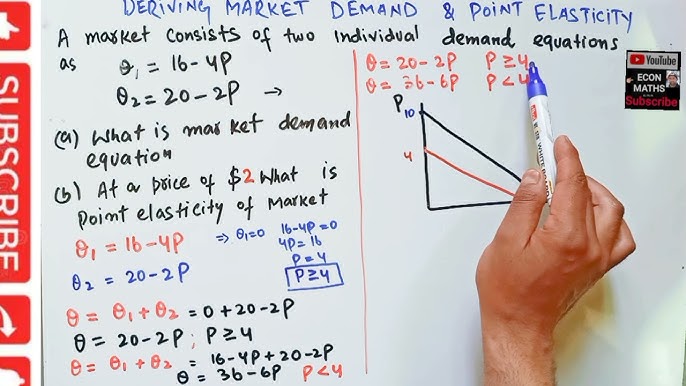 DERIVING MARKET DEMAND & POINT ELASTICITY
A market consists of two individual demand equations
as θ₁ = 16-4P
θ₂ = 20-2P →
(a) What is market demand equation
(b) At a price of $2 What is Point elasticity of Market
θ₁ = 16-4P ⇒ θ₁=0 16-4P=0
4P=16
P=4
θ₂ = 20-2P P≥4
θ = θ₁+θ₂ = 0+20-2P
θ = 20-2P ; P≥4
θ = θ₁+θ₂ = 16-4P+20-2P
θ = 36-6P P<4
θ = 20-2P P≥4
θ = 36-6P P<4
P
10
4
YouTube
ECON
MATHS
Subscribe
SUBSCRIBE